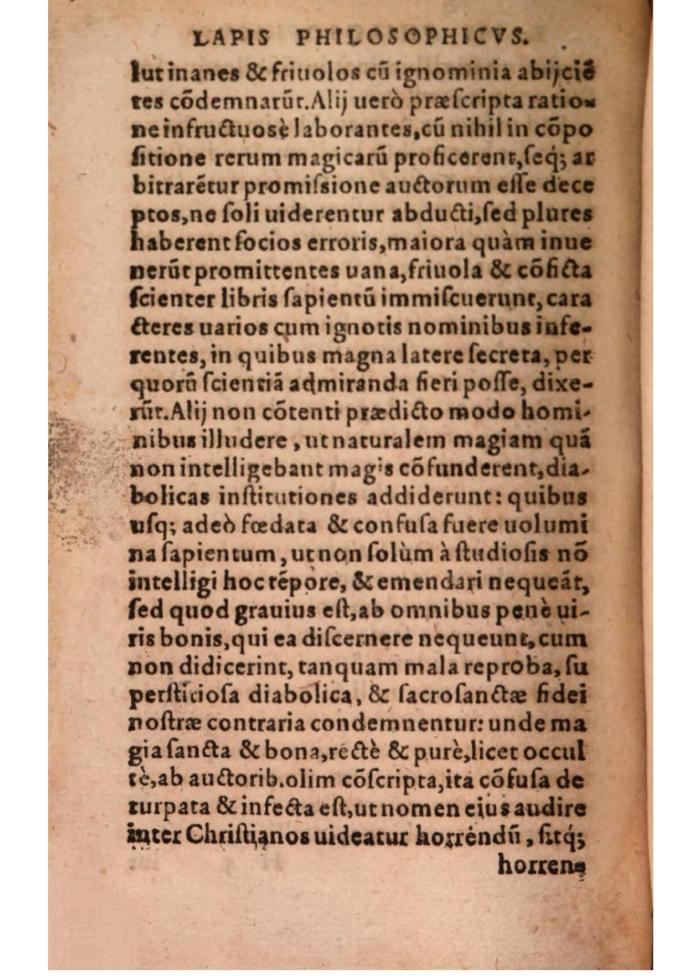 LAPIS PHILOSOPHICVS.
lut inanes & friuolos cũ ignominia abijciẽ
tes cõdemnarũt. Alij uerò præſcripta ratio-
ne infructuosè laborantes, cũ nihil in cõpo
ſitione rerum magicarũ proficerent, ſeq; ar
bitrarẽtur promiſsione auctorum eſſe dece
ptos, ne ſoli uiderentur abducti, ſed plures
haberent ſocios erroris, maiora quàm inue
nerũt promittentes uana, friuola & cõficta
ſcienter libris ſapientũ immiſcuerunt, cara
cteres uarios cum ignotis nominibus infe-
rentes, in quibus magna latere ſecreta, per
quorũ ſcientiã admiranda fieri poſſe, dixe-
rũt. Alij non cõtenti prædicto modo homi-
nibus illudere, ut naturalem magiam quã
non intelligebant magis cõfunderent, dia-
bolicas inſtitutiones addiderunt: quibus
uſq; adeò fœdata & confuſa fuere uolumi
na ſapientum, ut non ſolùm à ſtudioſis nõ
intelligi hoc tẽpore, & emendari nequeãt,
ſed quod grauius eſt, ab omnibus penè ui-
ris bonis, qui ea diſcernere nequeunt, cum
non didicerint, tanquam mala reproba, ſu
perſtitioſa diabolica, & ſacroſanctæ fidei
noſtræ contraria condemnentur: unde ma
gia ſancta & bona, rectè & purè, licet occul
tè, ab auctorib. olim cõſcripta, ita cõfuſa de
turpata & infecta eſt, ut nomen eius audire
inter Chriſtianos uideatur horrendũ, ſitq;
horren-